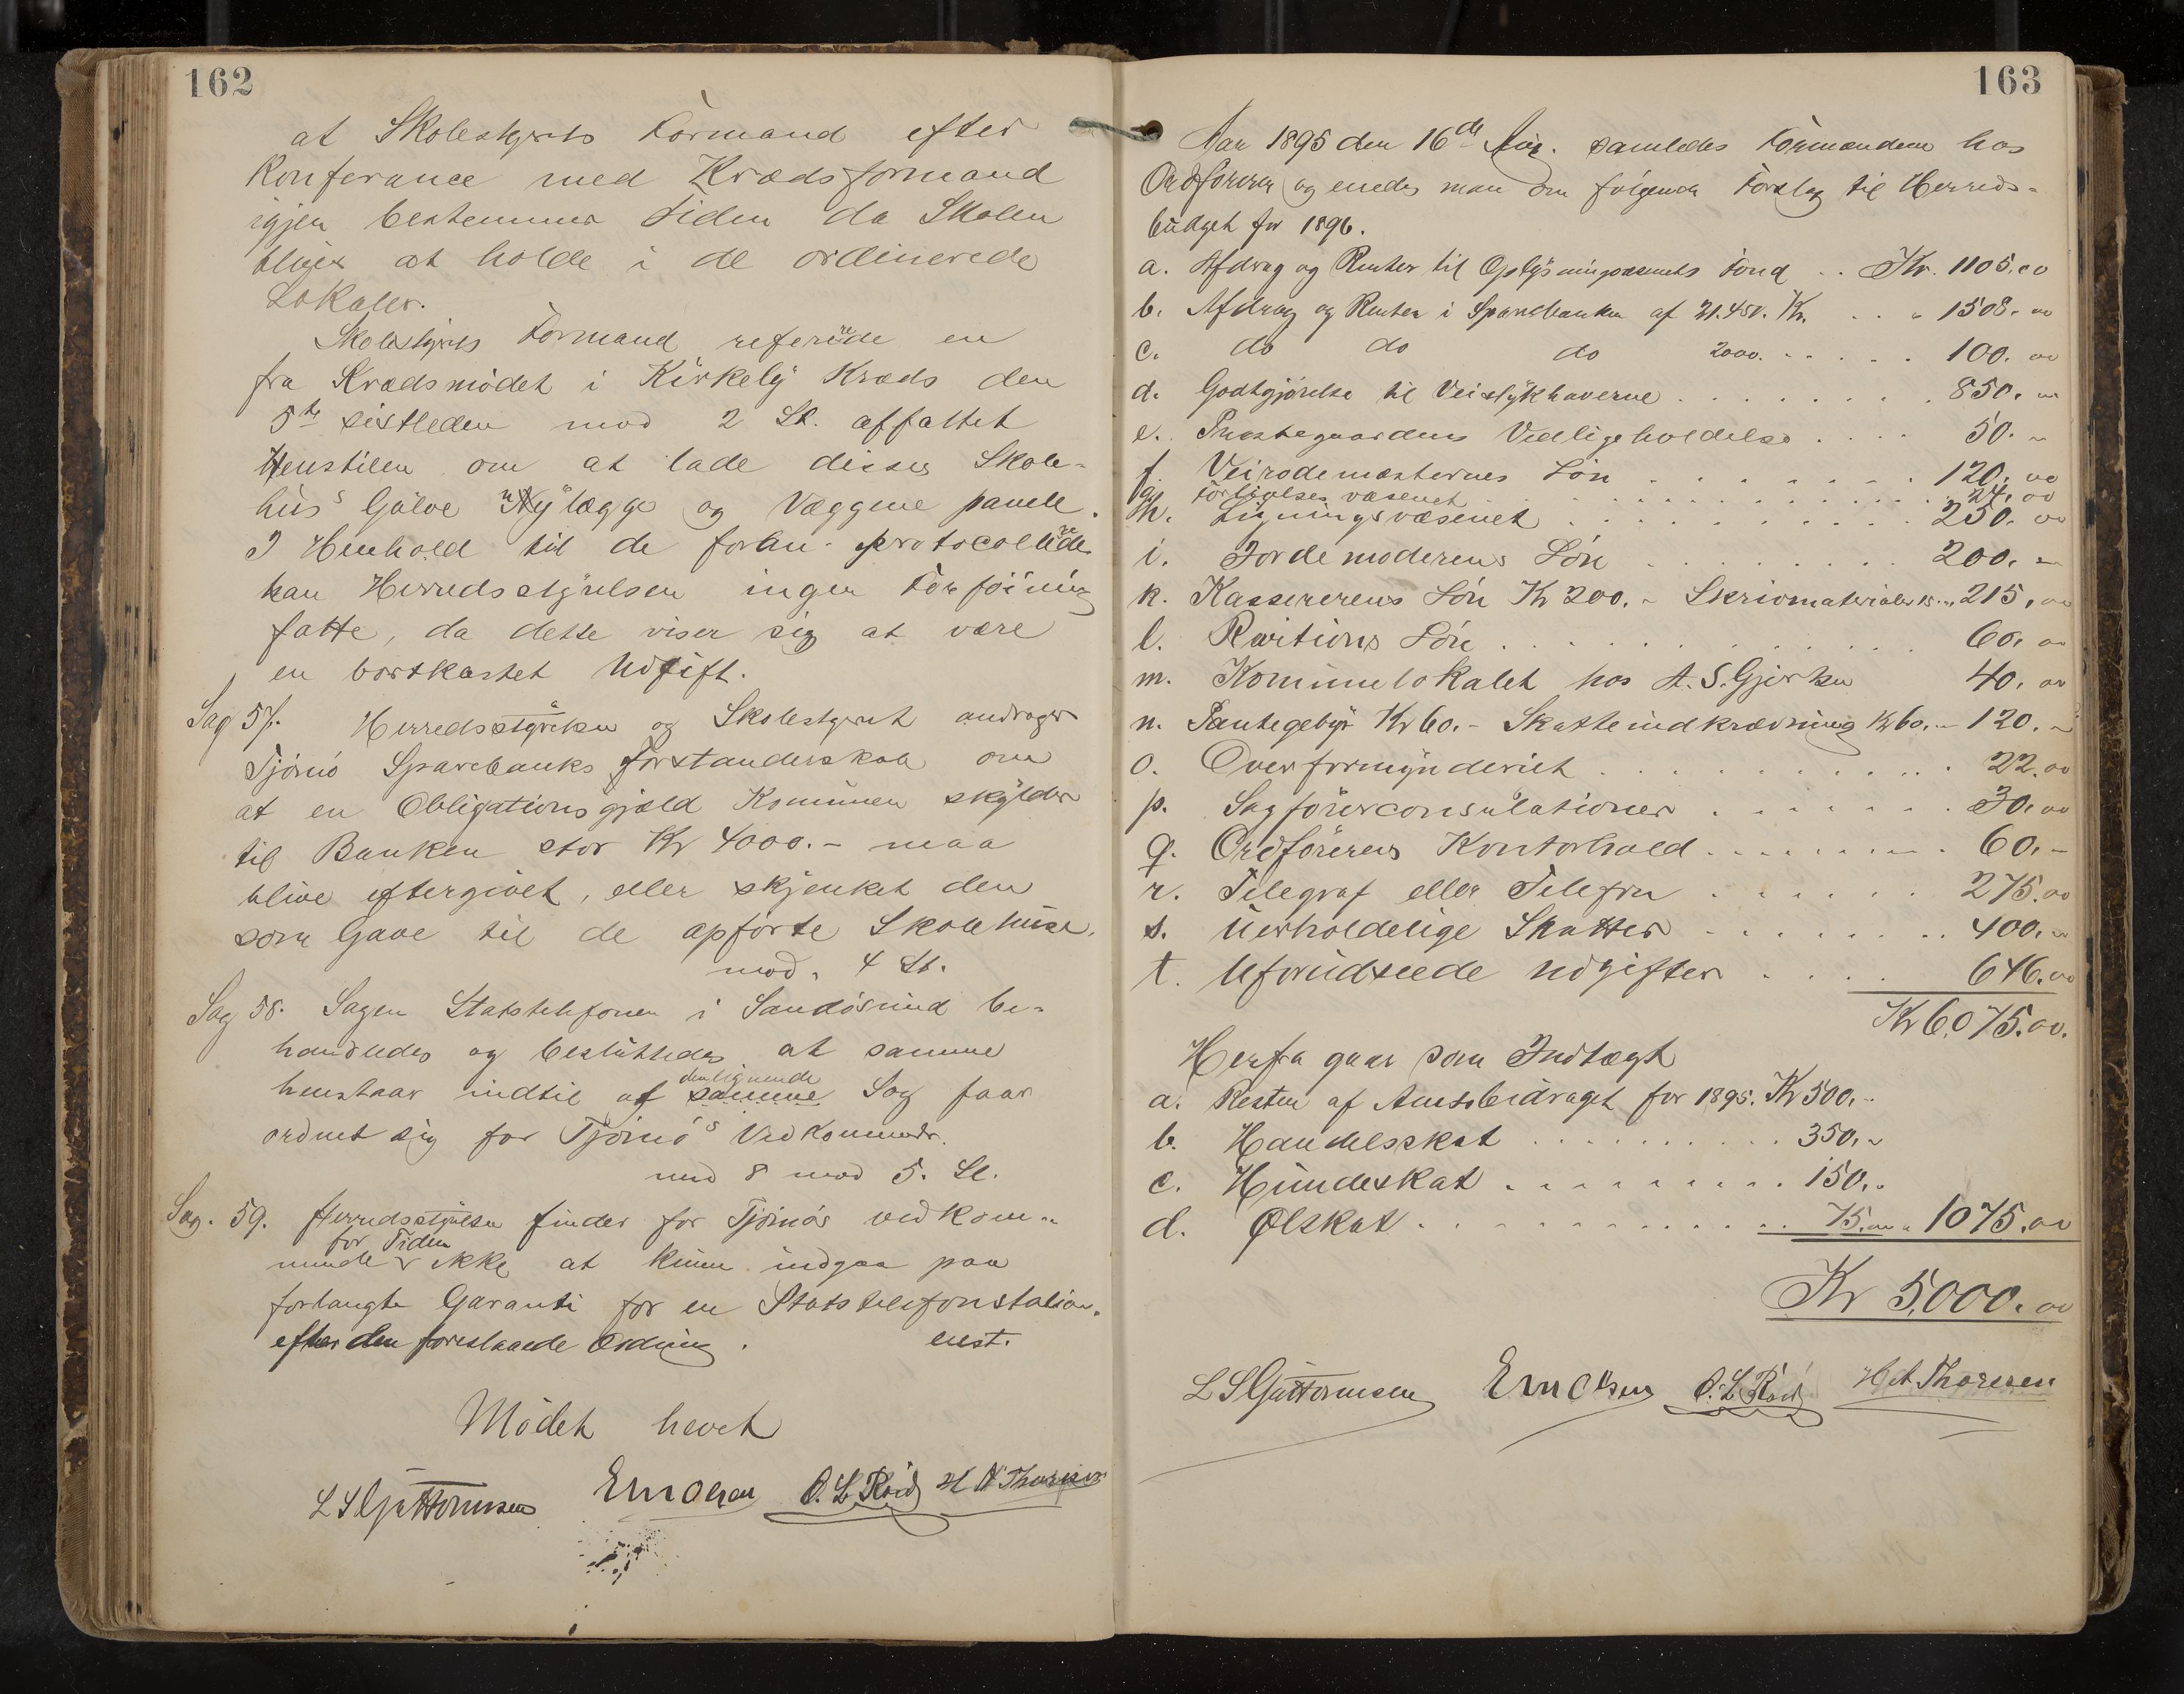 162
at Skolestyrets Formand efter
Konferance med Krædsformand
igjen bestemmer Tiden da Skolen
bliver at holde i de ordinerede
Lokaler.
Skolestyrets Formand refererede en
fra Krædsmødet i Kirkely Kræds den
5te sistleden mod 2 St. affattet
Henstilen om at lade disses Skole-
hus's Gulve nylægge og Væggene panele.
I Henhold til de forhn. protocollede
kan Herredsstyrelsen ingen Forføining
fatte, da dette viser sig at være
en bortkastet Udgift.
Sag 57. Herredsstyrelsen og Skolestyret andrager
Tjömö Sparebanks Forstanderskab om
at en Obligationsgjæld Kommunen skylder
til Banken stor Kr 4000.- maa
blive eftergivet, eller skjenket den
som Gave til de opførte Skolehuse.
mod. 4 St.
Sag 58. Sagen Statstelefonen i Sandøsund be-
handledes og besluttedes at samme
henstaar indtil af denlignende samme Sag faar
ordnet sig for Tjömö's Vedkommende.
med 8 mod 5. St.
Sag. 59. Herredsstyrelsen finder for Tjömös vedkom-
mende for Tiden ikke at kunne indgaa paa
forlangte Garanti for en Statstelefonstation.
efter den foreslaaede Ordning. enst.
Mödet hævet
L S Guttormsen O. L. Röed H A Thoresen
163
Aar 1895 den 16de Aug. samledes Formændene hos
Ordföreren og enedes man om følgende Forslag til Herreds-
budget for 1896.
a. Afdrag og Renter til Oplysningsvæsenets Fond .. Kr. 1105.00
b. Afdrag og Renter i Sparebanken af 21.450. Kr. . . " 1508.00
c. do do do 2000. . . . . . 100.00
d. Godtgjörelse til Veistykhaverne . . . . . . . 850.00
e. Præstegaardens Vedligeholdelse . . . . 50.-
f. Veirodemesternes Lön . . . . . . . 120.00
g. Forligelsesvæsenet . . . . . . . . . . 24.00
h. Ligningsvæsenet . . . . . . . . . . 250.00
i. Jordemoderens Lön . . . . . . . . 200.-
k. Kassererens Lön Kr 200.- Skrivmaterialer 15.- 215.00
l. Revitions Lön . . . . . . . . . . . . 60.00
m. Kommunelokalet hos A. S. Gjerken 40.00
n. Pantegebyr Kr 60.- Skatteindkrævning Kr 60.- 120.-
o. Overformynderiet . . . . . . . . . . 22.00
p. Sagförerconsulationer . . . . . . . 30.00
q. Ordförerens Kontorhold . . . . . . . . 60.-
r. Telegraf eller Telefon . . . . . . 275.00
s. Uerholdelige Skatter . . . . . . . . 400.-
t. Uforudseede udgifter . . . . 646.00
Kr 6075.00.
Herfra gaar som Indtægt
a. Resten af Amtsbidraget for 1895. Kr 500.-
b. Handelsskat . . . . . . . . . . 350.-
c. Hundeskat . . . . . . . . . 150.-
d. Ølskat . . . . . . . . . . . . 75.00 " 1075.00
Kr 5,000.00
L S Guttormsen O. L. Röed H A Thoresen